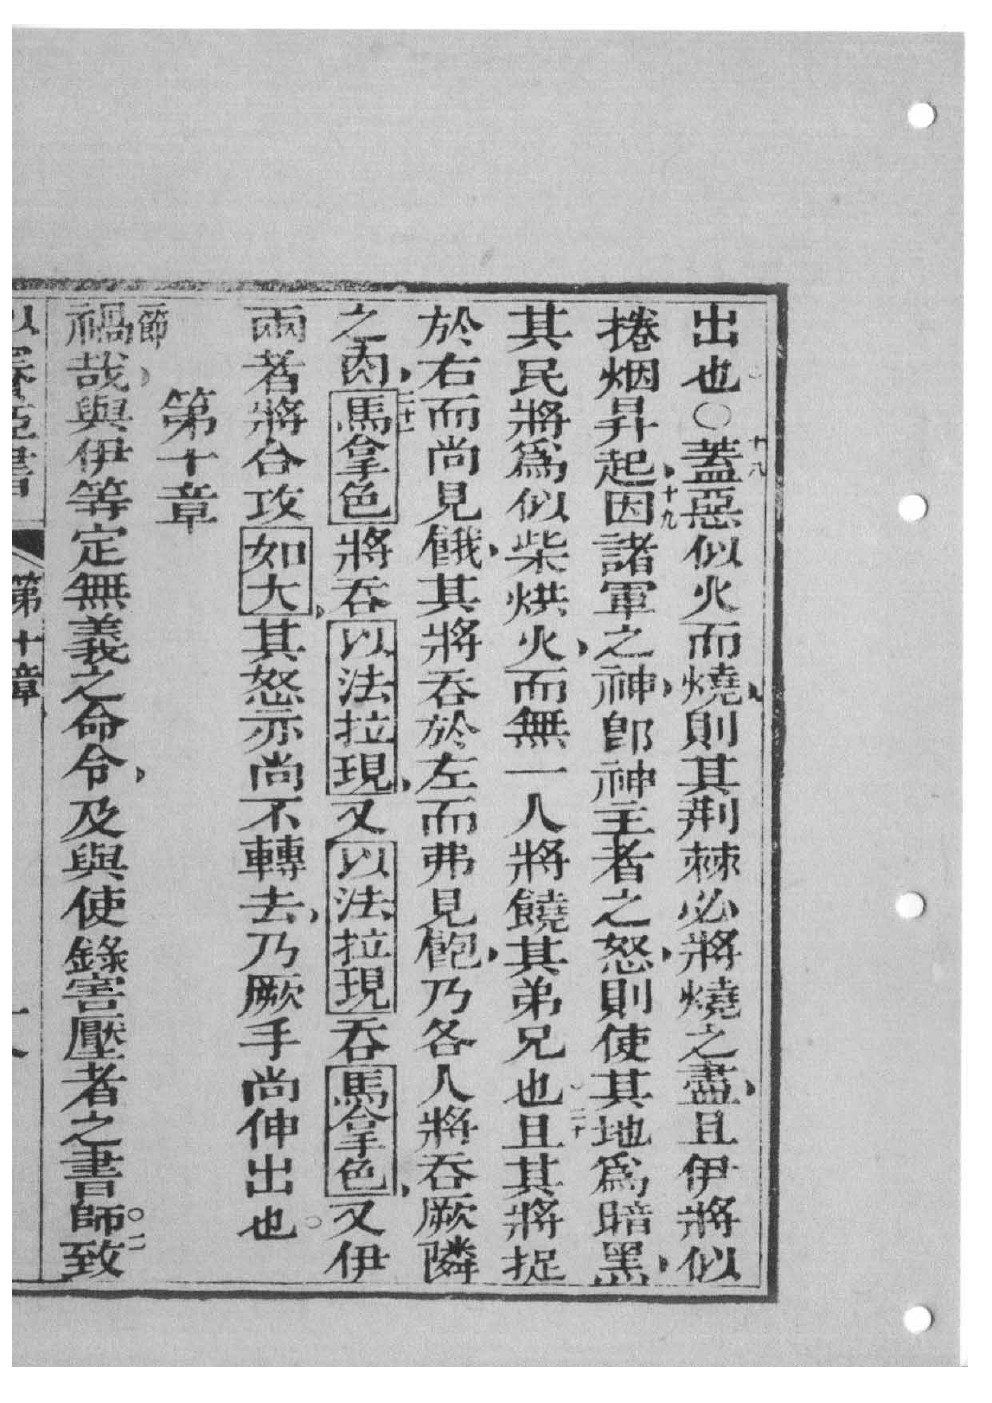 出也○十八蓋惡似火而燒則其荆棘必將燒之盡且伊將似
捲烟昇起十九因諸軍之神卽神主者之怒則使其地爲暗黑
其民將爲似柴烘火而無一人將饒其弟兄也二十且其將捉
於右而尚見餓其將吞於左而弗見飽乃各人將吞厥隣
之肉二十一馬拿色將吞以法拉現又以法拉現吞馬拿色又伊
兩者將合攻如大其怒亦尚不轉去乃厥手尚伸出也
第十章
一節禍哉與伊等定無義之命令及與使錄害壓者之書師○二致
第十章